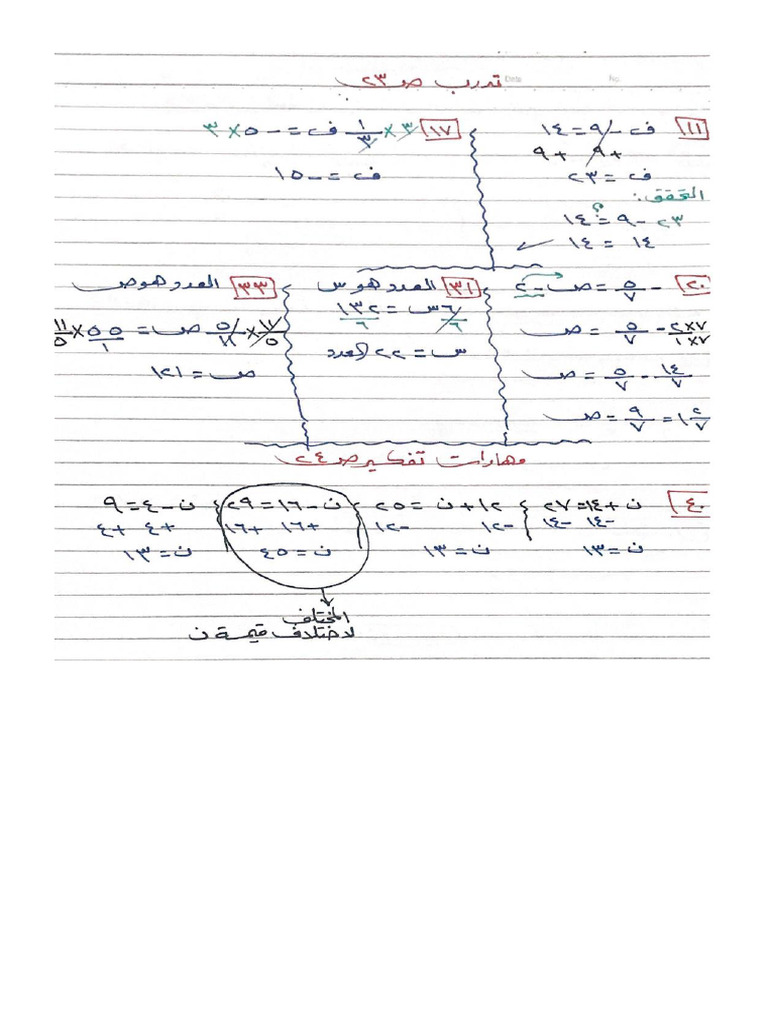 تدرب ص ٢٣
Date No.
١١ ف - ٩ = ١٤
+ ٩ + ٩
ف = ٢٣
التحقق:
٢٣ - ٩ =؟ ١٤
١٤ = ١٤ ✓
١٧ ٣ × ١/٣ ف = - ٥ × ٣
ف = - ١٥
٢٠ - ٥/٧ = ص - ٢
٢×٧/١×٧ - ٥/٧ = ص
١٤/٧ - ٥/٧ = ص
١ ٢/٧ = ٩/٧ = ص
٣١ العدد هو س
٦س/٦ = ١٣٢/٦
س = ٢٢ (العدد
٣٣ العدد هو ص
١١/٥ × ٥/١١ ص = ٥٥/١ × ١١/٥
ص = ١٢١
مهارات تفكير ص ٢٤
٤٠ ن + ١٤ = ٢٧ { ١٢ + ن = ٢٥ { ن - ١٦ = ٢٩ { ن - ٤ = ٩
- ١٤ - ١٤ - ١٢ - ١٢ + ١٦ + ١٦ + ٤ + ٤
ن = ١٣ ن = ١٣ ن = ٤٥ ن = ١٣
المختلف
لاختلاف قيمة ن